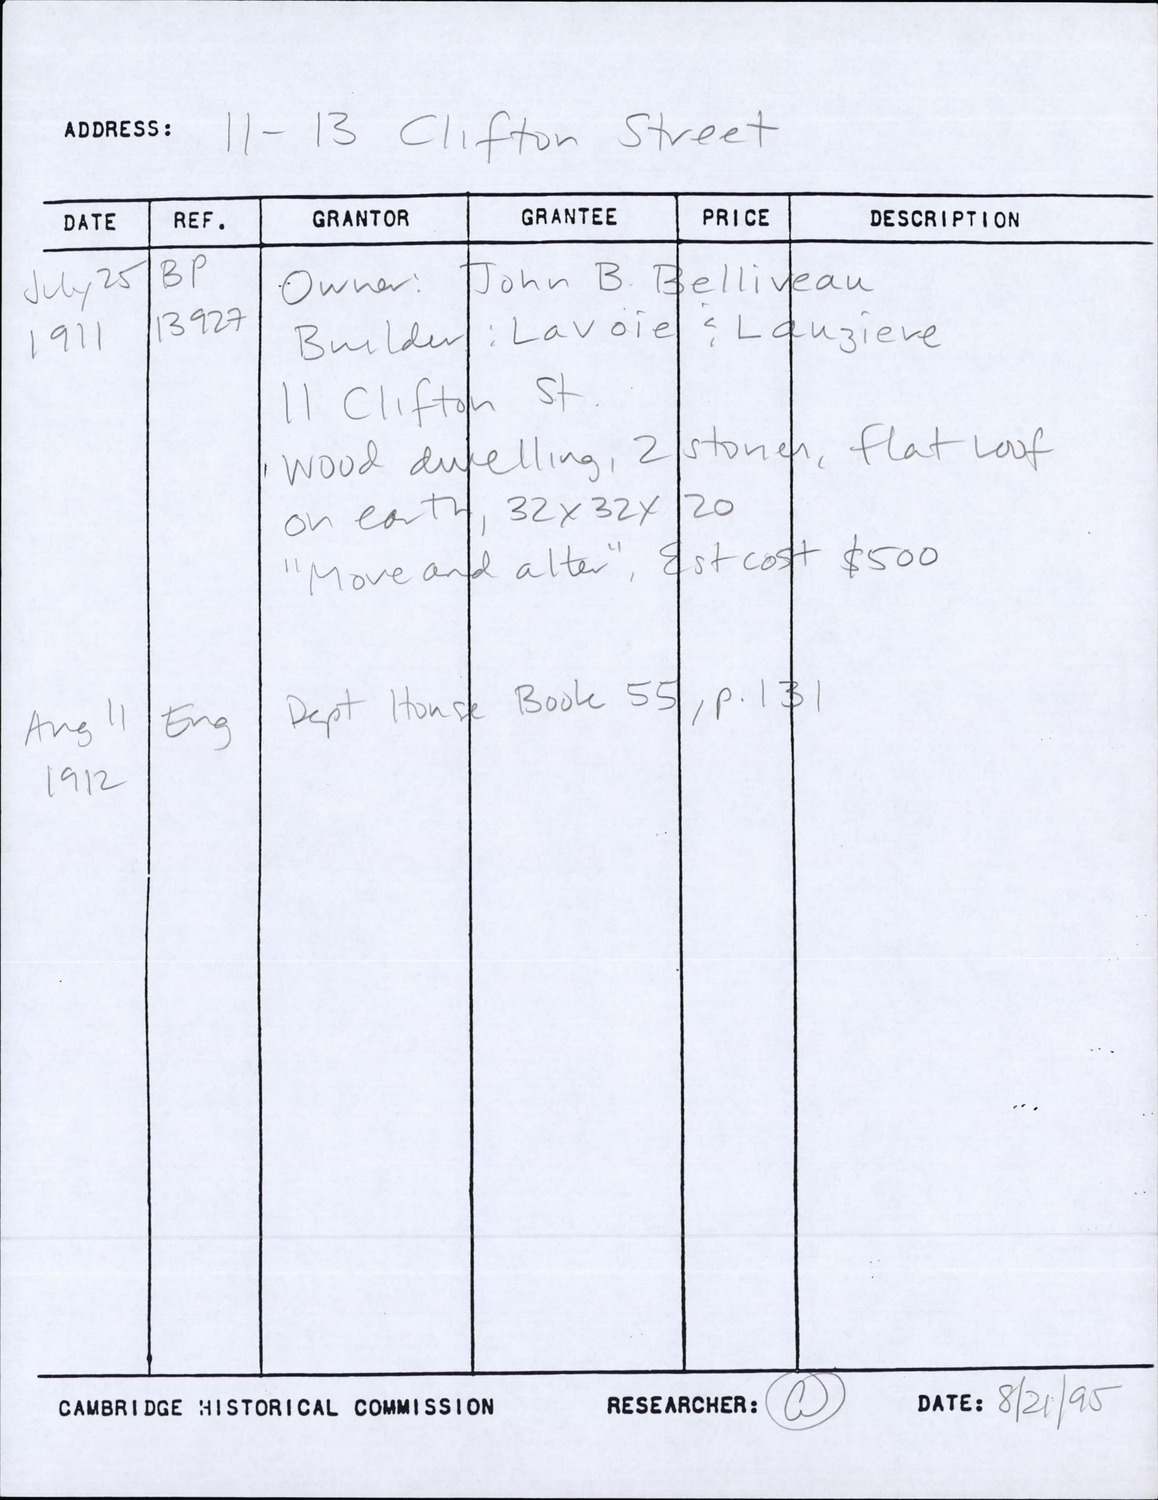 ADDRESS: 11-13 Clifton Street
DATE REF. GRANTOR GRANTEE PRICE DESCRIPTION
July 25 BP Owner: John B. Belliveau
1911 13927 Builder: Lavoie & Lauziere
11 Clifton St.
wood dwelling, 2 stories, flat roof
on earth, 32x32x20
"Move and alter", Est cost $500
Aug 11 Eng Dept House Book 55, p. 131
1912
CAMBRIDGE HISTORICAL COMMISSION RESEARCHER: DATE: 8/21/95